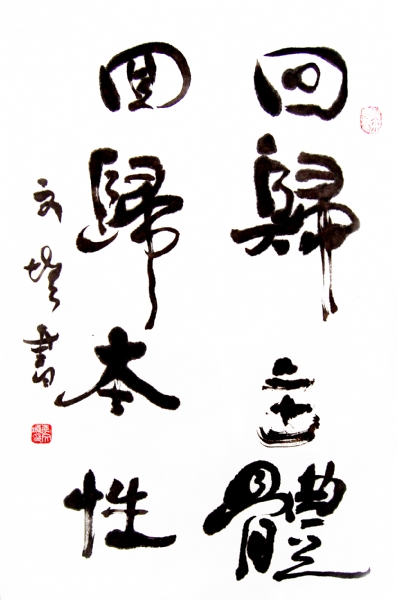 回歸體
回歸本性
文書